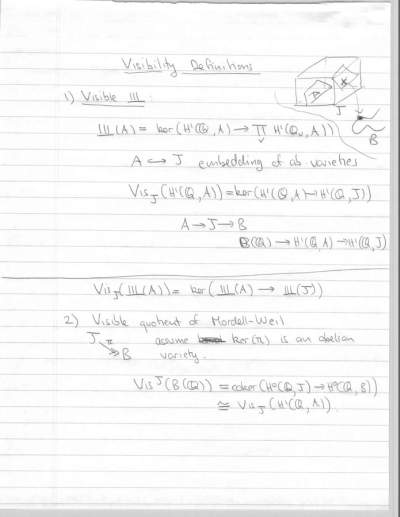 Visibility Definitions
1) Visible Ш :
Ш(A) = ker(H¹(Q, A) → ∏ᵥ H¹(Qᵥ, A))
A X
J
B
A ↪ J embedding of ab varieties
Vis_J(H¹(Q, A)) = ker(H¹(Q, A) → H¹(Q, J))
A → J → B
B(Q) → H¹(Q, A) → H¹(Q, J)
Vis_J(Ш(A)) = ker(Ш(A) → Ш(J))
2) Visible quotient of Mordell-Weil
J π assume ker(π) is an abelian
↠ B variety.
Vis^J(B(Q)) = coker(H⁰(Q, J) → H⁰(Q, B))
≅ Vis_J(H¹(Q, A)).